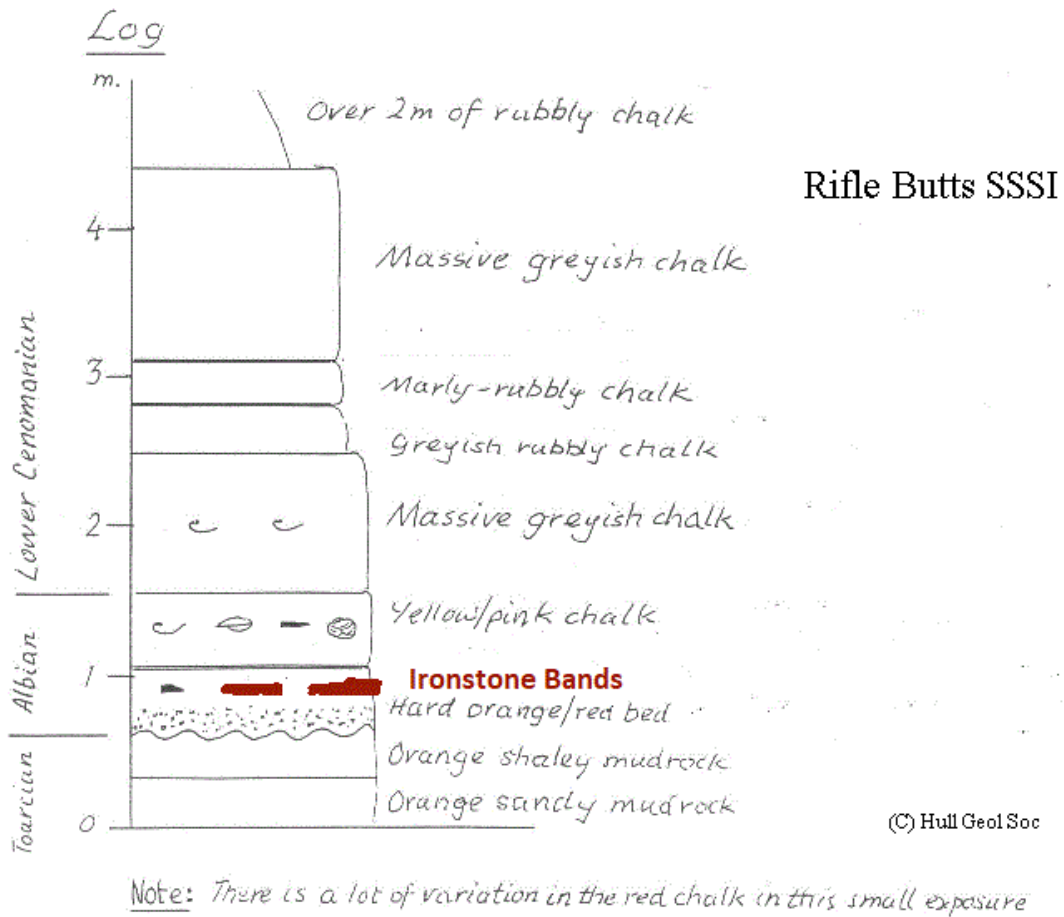 Log
m.
Over 2m of rubbly chalk
Rifle Butts SSSI
4
Massive greyish chalk
3
Marly-rubbly chalk
Greyish rubbly chalk
Lower Cenomanian
2
Massive greyish chalk
Yellow/pink chalk
Albian
1
Ironstone Bands
Hard orange/red bed
Orange shaley mudrock
Toarcian
Orange sandy mudrock
0
(C) Hull Geol Soc
Note: There is a lot of variation in the red chalk in this small exposure